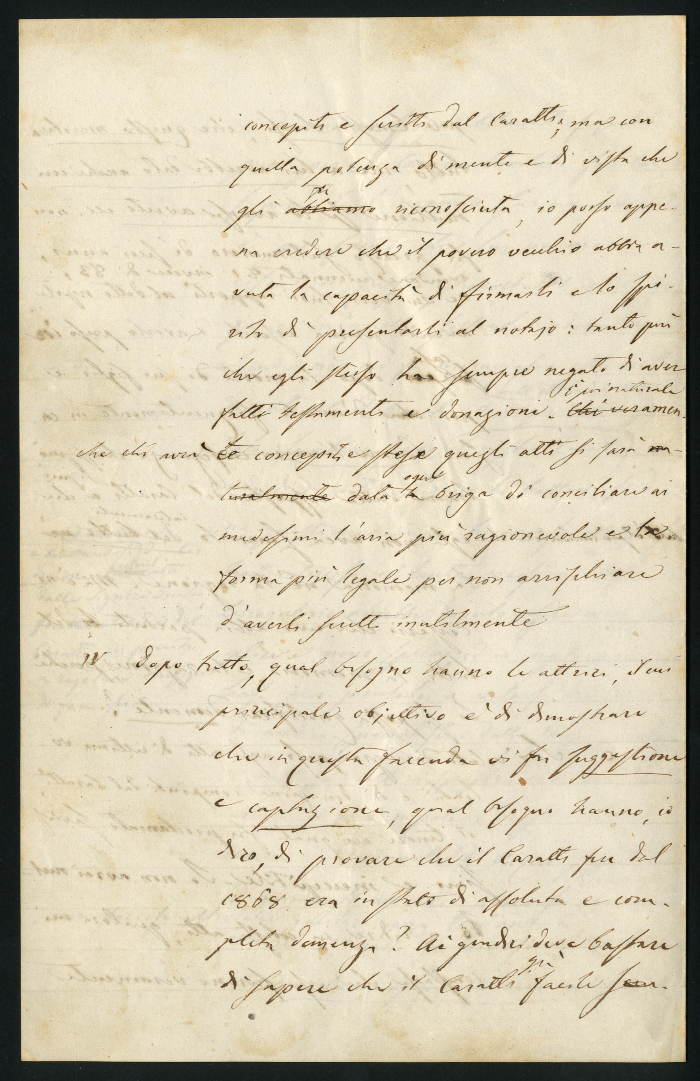 concepiti e scritti dal Caratti; ma con
quella potenza di mente e di vista che
gli abbiamo riconosciuta, io posso appe-
na credere che il povero vecchio abbia a-
vuta la capacità di firmarli e lo spi-
rito di presentarli al notajo: tanto più
che egli stesso ha sempre negato di aver
È poi naturale
fatti testamenti e donazioni. Chi veramen-
che chi avrà te concepiti e stese quegli atti si sarà na-
ogni
turalmente data la briga di conciliare ai
medesimi l'aria più ragionevole e la
forma più legale per non arrischiare
d'averli scritti inutilmente
IV Dopo tutto, qual bisogno hanno le attrici, il cui
principale objettivo è di dimostrare
che in questa faccenda vi fu suggestione
e captazione, qual bisogno hanno, io
dico, di provare che il Caratti fu dal
1868 era in stato di assoluta e com-
pleta demenza? Ai giudici deve bastare
già
di sapere che il Caratti fosse